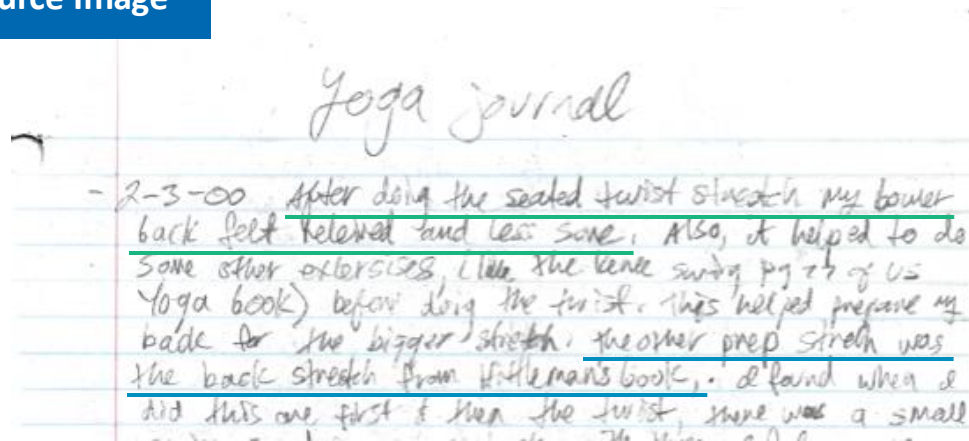 urce Image
Yoga journal
- 2-3-00 After doing the seated twist stretch my lower
back felt releived and less sore. Also, it helped to do
some other extersises, (like the knee swing pg 77 of US
Yoga book) before doing the twist. This helped prepare my
back for the bigger stretch. the other prep stretch was
the back stretch from Hittleman's book,. I found when I
did this one first & then the twist, there was a small